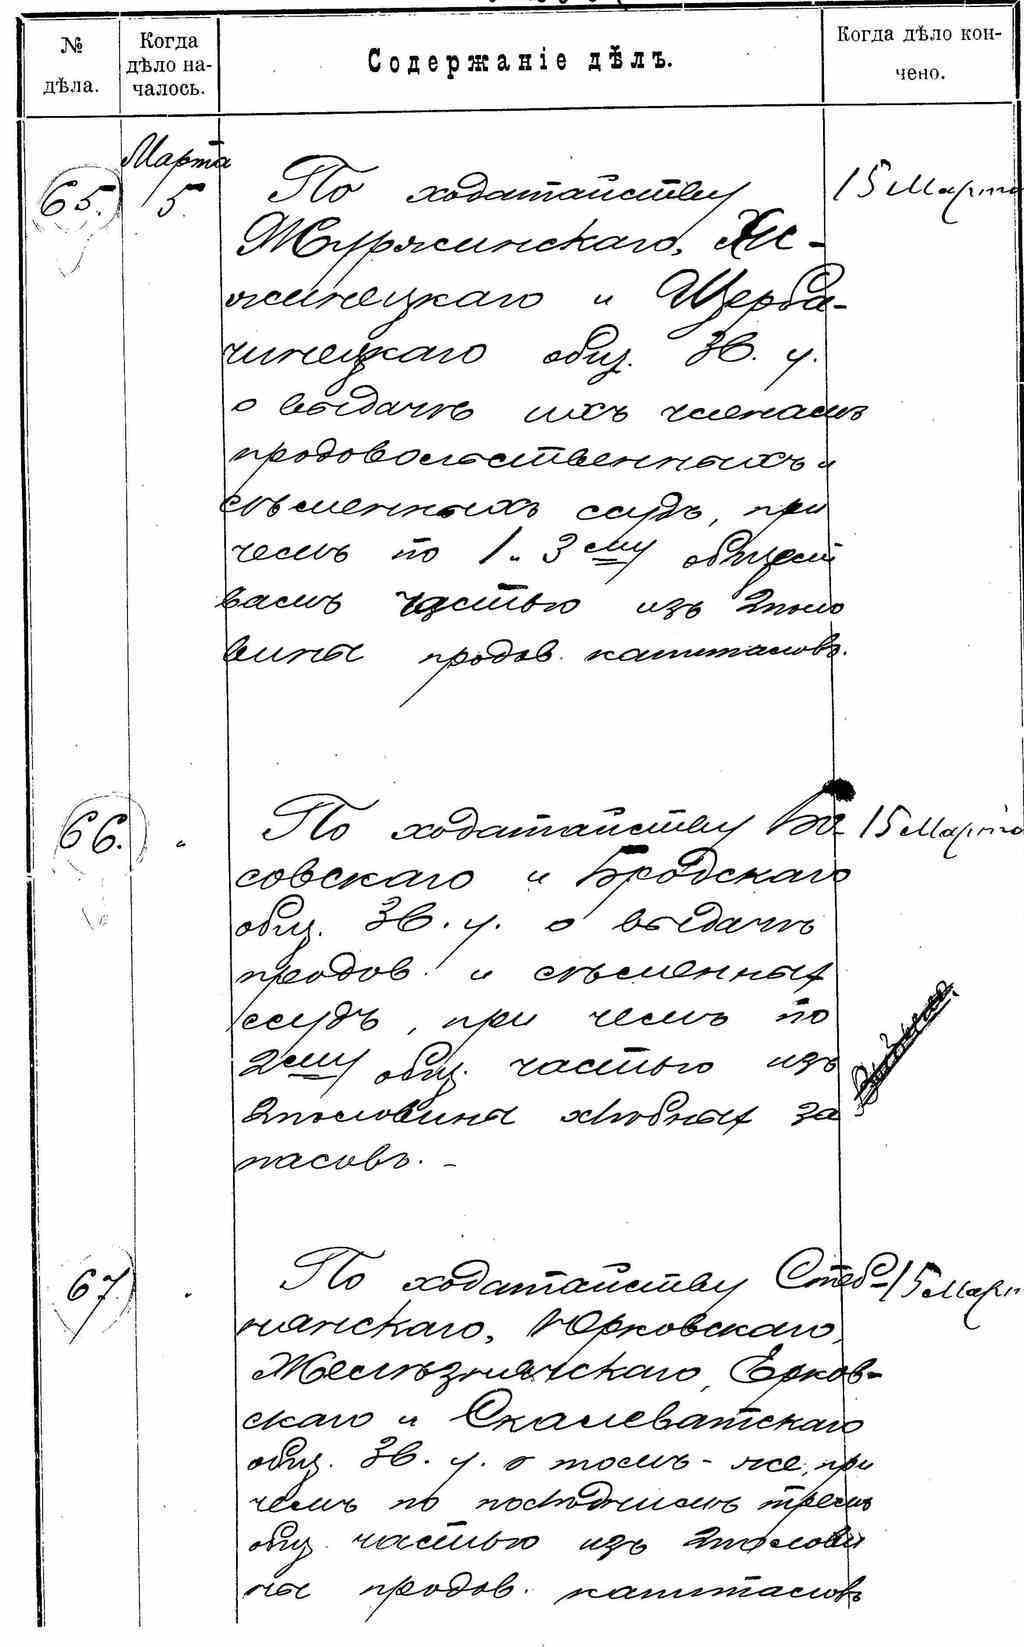 № дѣла.
Когда дѣло на-
чалось.
Содержаніе дѣлъ.
Когда дѣло кон-
чено.
Марта
65. 5. По ходатайству 15 Марта
Журжинскаго, Хи-
жинецкаго и Щерба-
чинецкаго общ. Зв. у.
о выдачѣ ихъ членамъ
продовольственныхъ и
сѣменныхъ ссудъ, при
чемъ по 1 и 3му общест
вамъ частью изъ 2 поло
вины продов. капиталовъ.
66. " По ходатайству Бо- 15 Марта
совскаго и Бродскаго
общ. Зв. у. о выдачѣ
продов. и сѣменныхъ
ссудъ, при чемъ по
2му общ. частью изъ
2 половины хлѣбныхъ за
пасовъ. –
67. " По ходатайству Стеб- 15 Март
нянскаго, Юрковскаго,
Желѣзнячскаго, Ерков-
скаго и Скалеватскаго
общ. Зв. у. о томъ-же, при
чемъ по послѣднимъ тремъ
общ. частью изъ 2 полови
ны продов. капиталовъ